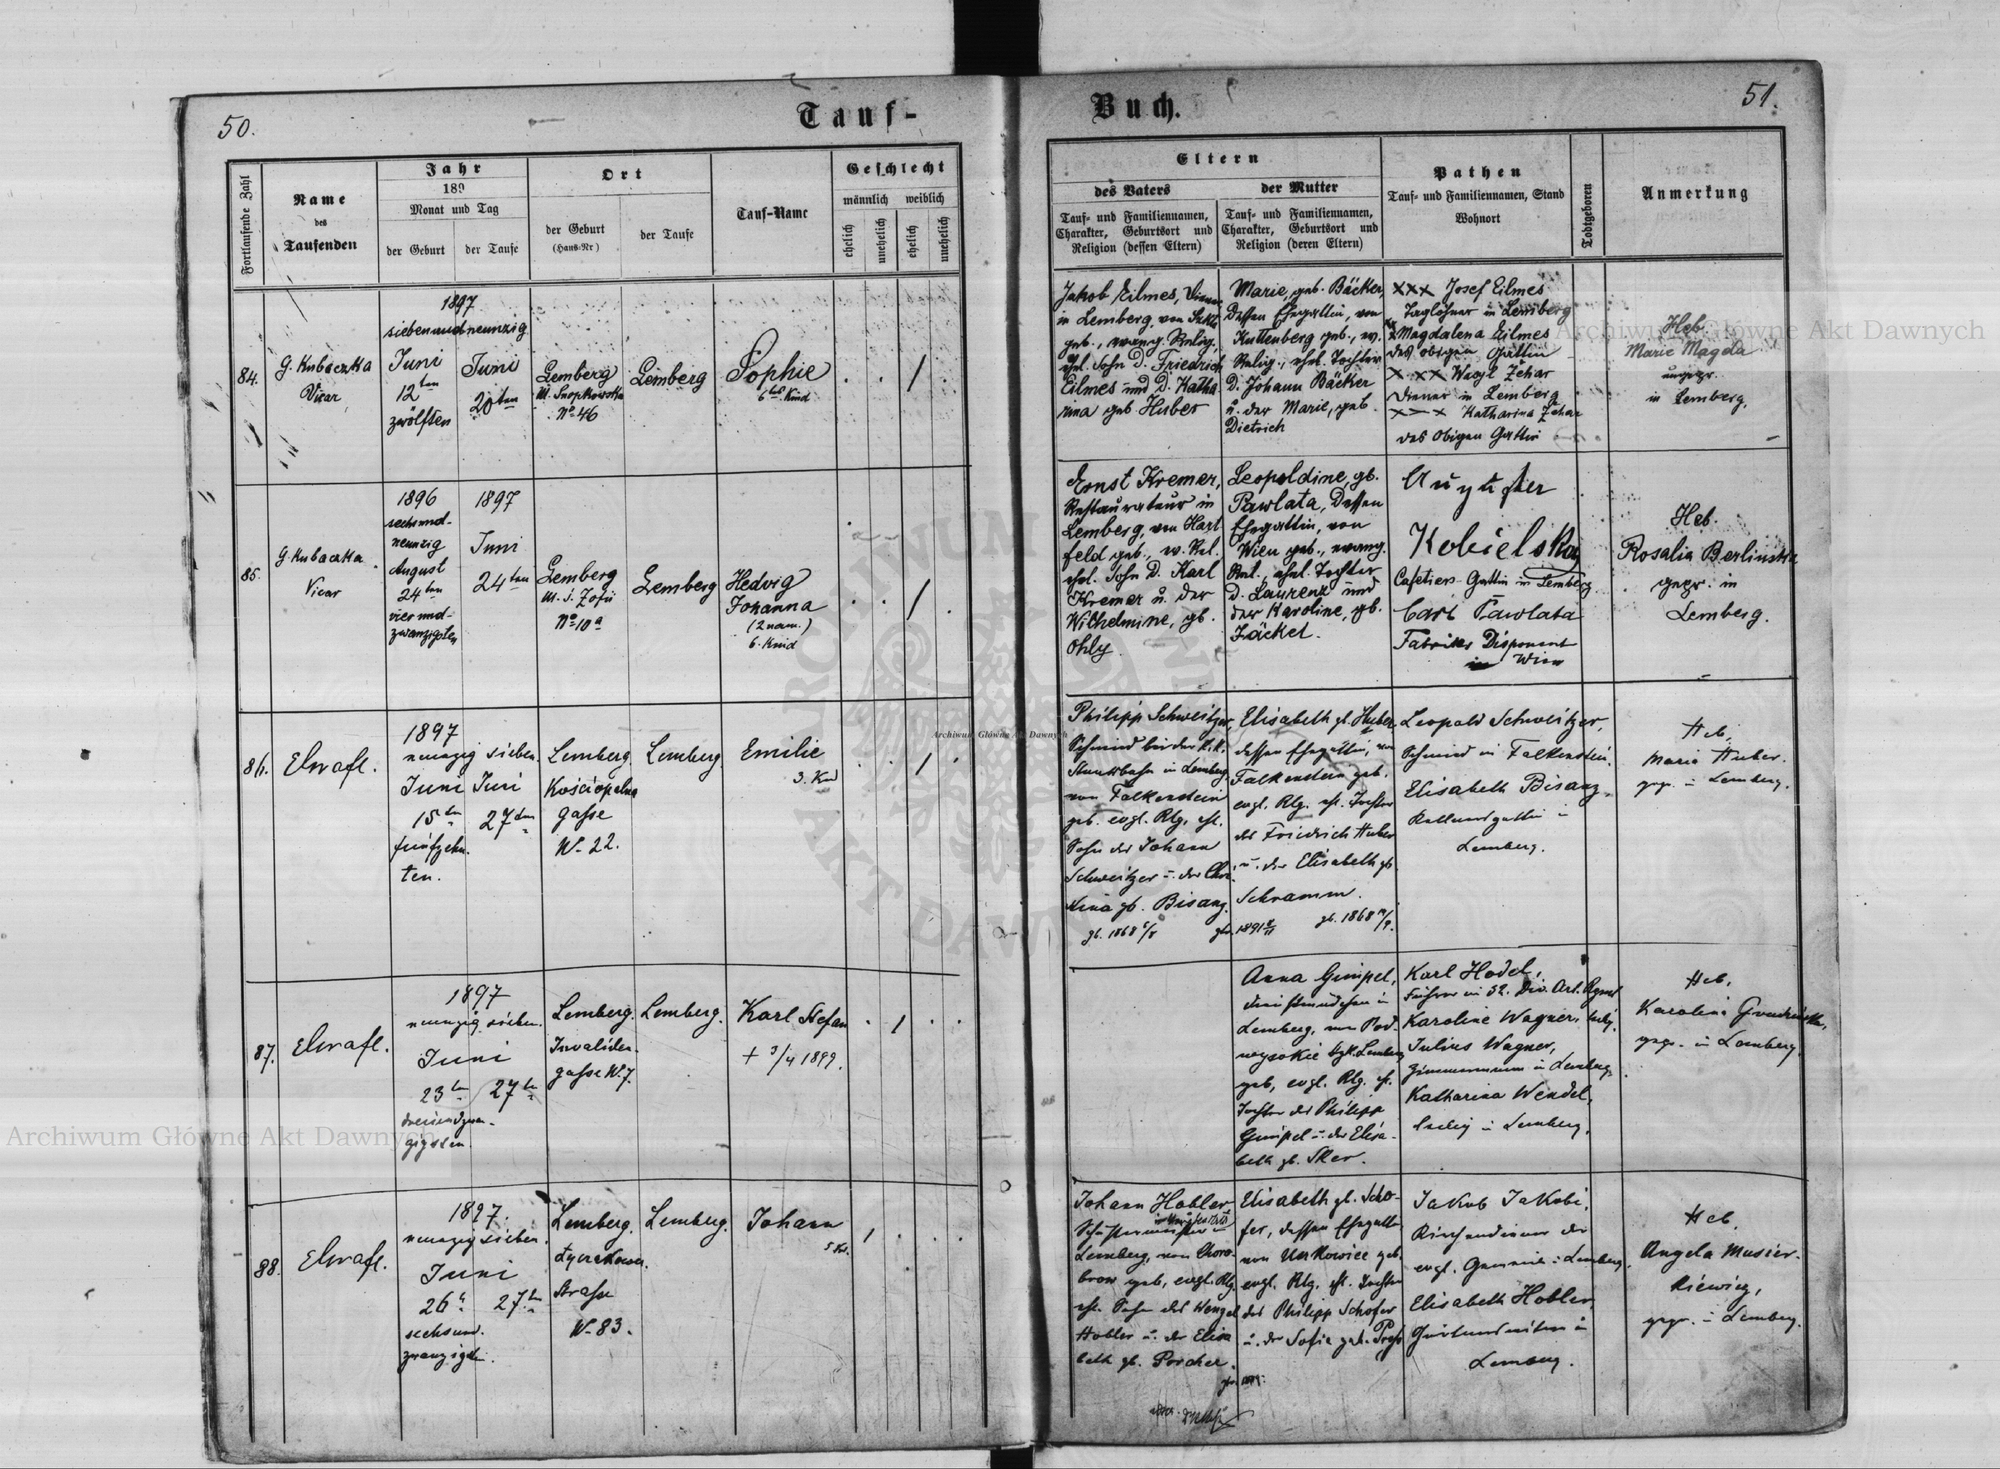 50.
Tauf-
Fortlaufende Zahl
Name
des
Taufenden
Jahr
189
Monat und Tag
der Geburt
der Taufe
Ort
der Geburt
(Haus-Nr)
der Taufe
Tauf-Name
Geschlecht
männlich
weiblich
ehelich
unehelich
ehelich
unehelich
84.
G. Kubaczka
Vicar
1897
siebenundneunzig
Juni
12ten
zwölften
Juni
20ten
Lemberg
No 46
Lemberg
Sophie
6tes Kind
85.
G. Kubaczka
Vicar
1896
sechsund-
neunzig
August
24ten
vierund-
zwanzigsten
1897
Juni
24ten
Lemberg
No 10a
Lemberg
Hedvig
Johanna
(2 nam.)
6. Kind
86.
1897
neunzig sieben
Juni
15ten
fünfzehn-
ten.
Juni
27ten
Lemberg.
Kościopalna
gasse
N. 22.
Lemberg.
Emilie
3. Kind
87.
1897
neunzig sieben.
Juni
23ten
27ten
Lemberg.
Invaliden-
gasse N. 7.
Lemberg.
Karl Stefan
+ 3/4 1899.
88.
1897.
neunzig sieben.
Juni
26ten
sechsund-
27ten
Lemberg.
Strasse
N. 83.
Lemberg.
Johann
51.
Buch.
Eltern
des Vaters
Tauf- und Familiennamen,
Charakter, Geburtsort und
Religion (dessen Eltern)
der Mutter
Tauf- und Familiennamen,
Charakter, Geburtsort und
Religion (deren Eltern)
Pathen
Tauf- und Familiennamen, Stand
Wohnort
Todtgeboren
Anmerkung
Jakob Eilmes, Diener
in Lemberg, von
geb., evang. Relig.
ehl. Sohn D. Friedrich
Eilmes und D. Katha
rina geb. Huber
Marie, geb. Bäcker,
Dessen Ehegattin, von
Kuttenberg geb., ev.
Relig., ehel. Tochter
D. Johann Bäcker
u. der Marie, geb.
Dietrich
××× Josef Eilmes
Taglöhner in Lemberg
Magdalena Eilmes
des obigen Gattin
××× Wasyl Zehar
Diener in Lemberg
××× Katharina Zehar
des obigen Gattin
Heb.
Marie Magda
in Lemberg.
Ernst Kremer,
Restaurateur in
Lemberg, von Hart
feld geb., ev. Rel.
ehl. Sohn D. Karl
Kremer u. der
Wilhelmine, gb.
Ohly
Leopoldine, gb.
Pawlata, Dessen
Ehegattin, von
Wien geb., evang.
Rel., ehel. Tochter
D. Laurenz und
der Karoline, gb.
Jäckel.
Kobielska
Cafetiers-Gattin in Lemberg
Carl Pawlata
Fabriks Disponent
in Wien
Heb.
Rosalia Berlinska
gepr. in
Lemberg.
Philipp Schweitzer,
Schmied bei der k.k.
Staatsbahn in Lemberg,
von Falkenstein
geb. evgl. Rlg. ehl.
Sohn des Johann
Schweitzer u. der Chri
stina gb. Bisanz.
Elisabeth gb. Huber,
dessen Ehegattin, von
Falkenstein geb.
evgl. Rlg. ehl. Tochter
des Friedrich Huber
u. der Elisabeth gb.
Schramm.
Leopold Schweitzer,
Schmied in Falkenstein.
Elisabeth Bisanz,
Lemberg.
Heb.
Maria Huber.
gepr. in Lemberg.
Anna Gimpel,
Dienstmädchen in
Lemberg, von Pod-
wysokie bzk. Lemberg
geb., evgl. Rlg. ehl.
Tochter des Philipp
Gimpel u. der Elisa-
beth gb. Sker.
Karl Hodel,
Führer im 32. Div. Art. Rgmt
Karoline Wagner, ledig.
Julius Wagner,
Zimmermann in Lemberg.
Katharina Wendel,
ledig in Lemberg.
Heb.
gepr. in Lemberg.
Johann Hobler,
Schustermeister in
Lemberg, von Choro-
brow geb., evgl. Rlg.
ehl. Sohn des Wenzel
Hobler u. der Elisa
beth gb. Porcher.
Elisabeth gb. Scho-
fer, dessen Ehegattin
von Unkowice geb.
evgl. Rlg. ehl. Tochter
des Philipp Schofer
u. der Sofie geb.
Jakob Jakobi,
Kirchendiener der
evgl. Gemeinde in Lemberg.
Elisabeth Hobler,
Lemberg.
Heb.
Angela Musier-
kiewicz,
gepr. in Lemberg.
Archiwum Główne Akt Dawnych
Archiwum Główne Akt Dawnych
Archiwum Główne Akt Dawnych